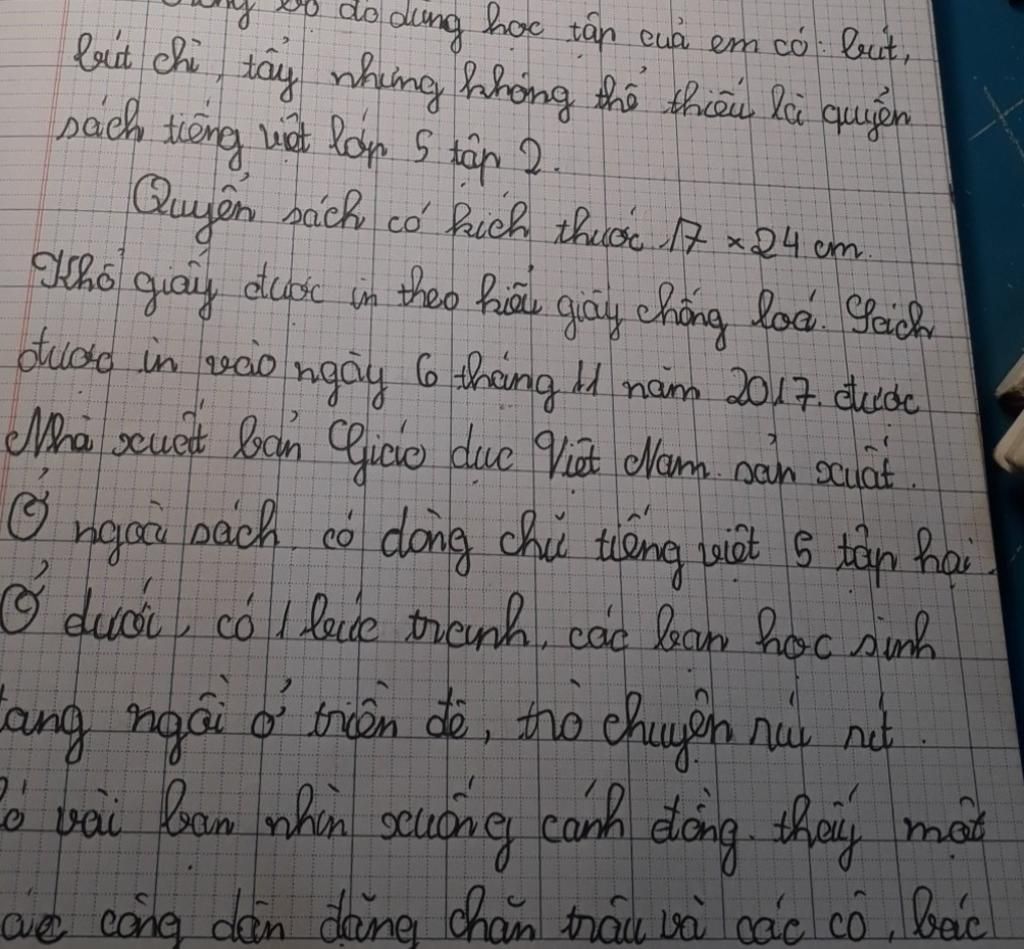 đồ dùng học tập của em có: bút,
bút chì, tẩy nhưng không thể thiếu là quyển
sách tiếng việt lớp 5 tập 2.
Quyển sách có kích thước 17 × 24 cm.
Khổ giấy được in theo kiểu giấy chống loá. Sách
được in vào ngày 6 tháng 11 năm 2017. được
Nhà xuất bản Giáo dục Việt Nam sản xuất.
Ở ngoài sách có dòng chữ tiếng việt 5 tập hai.
Ở dưới, có 1 bức tranh, các bạn học sinh
ang ngồi ở triền đê, trò chuyện ríu rít.
ó vài bạn nhìn xuống cánh đồng thấy một
công dân đang chăn trâu và các cô, bác